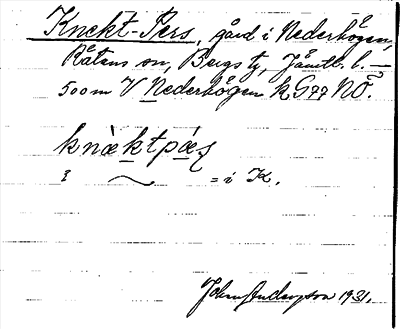 Knekt-Pers, gård i Nederhögen,
Rätans sn, Bergs tg, Jämtl. l. —
500 m V Nederhögen k G77 NÖ.
knæ̀ktpæș
i ~ = i K.
John Anderzson 1931.